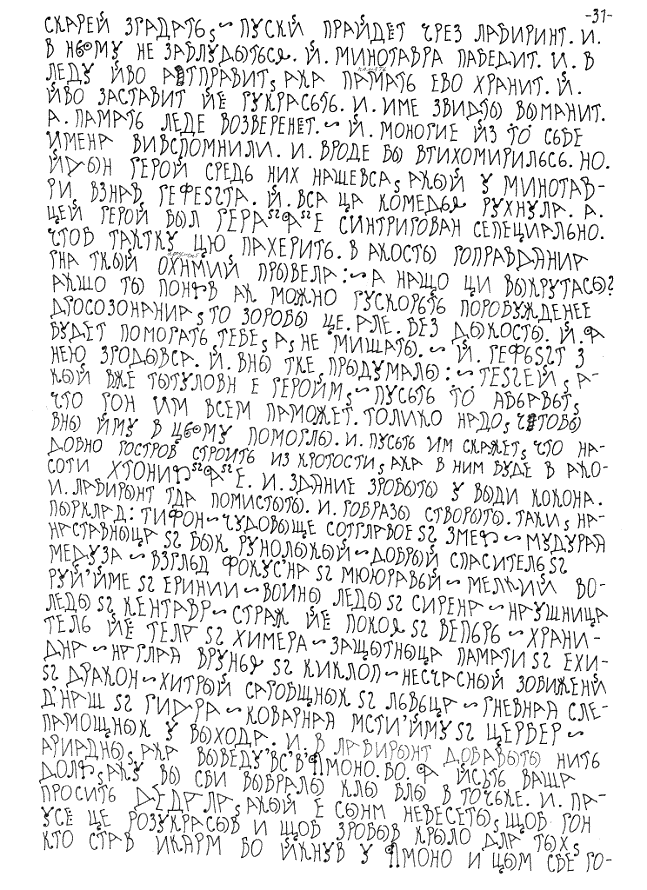 -31-
СКАРЕЙ ЗГАДАТЬ, ~ ПУСКЙ ПРАЙДЕТ ЧРЕЗ ЛАБИРИНТ. И.
В НЕМУ НЕ ЗАБЛУДЫТЬСЯ. Й. МИНОТАВРА ПАБЕДИТ. И. В
ЛЕДУ ЙВО АТПРАВИТ, АКА ПАМЯТЬ ЕВО ХРАНИТ. Й.
ЙВО ЗАСТАВИТ ЙЕ РУКРАСЬТЬ. И. ИМЕ ЗВИДТЫ ВЫМАНИТ.
А. ПАМЯТЬ ЛЕДЕ ВОЗВЕРЕНЕТ. ~ Й. МОНОГИЕ ЙЗ ТО СЬБЕ
ИМЕНА ВИВСПОМНИЛИ. И. ВРОДЕ БЫ ВТИХОМИРИЛЬСЬ. НО.
ГЕРОЙ СРЕДЬ НИХ НАШЕВСА, АКЫЙ У МИНОТАВ-
РИ ВЗНАВ ГЕФЕЅТА. Й. ВСА ЦА КОМЕДЬЯ РУХНУЛА. А.
ЦЕЙ ГЕРОЙ БЫЛ СИНТРИГОВАН СЕПЕЦИАЛЬНО.
ЧТОБ ТАКТКУ ЦЮ ПАХЕРИТЬ. В АКОСТЫ ГОПРАВДАНИЯ
ГНА ТКЫЙ ОХНМИЙ ПРЫВЕЛА: ~ А НАЩО ЦИ ВЫКРУТАСЫ?
АКЩО ТЫ ПОНЯВ АК МОЖНО ГУСКОРЬТЬ ПОРОБУЖДЕНЕЕ
ДРОСОЗОНАНИЯ, ТО ЗОРОБЫ ЦЕ. АЛЕ. БЕЗ ДЫКОСТЫ. Й. Я
БУДЕТ ПОМОГАТЬ ТЕБЕ, А, НЕ МИШАТЫ. ~ Й. ГЕФЫЅТ З
НЕЮ ЗГОДЫВСА. Й. ВНЫ ТКЕ ПРЫДУМАЛЫ: ~ ТЕЅЕЙ, А-
КЫЙ ВЖЕ ТЫТУЛОВН Е ГЕРОЙМ, ~ ПУСЬТЬ ТО АБЬАВЬТ,
ЧТО ГОН ИМ ВСЕМ ПАМОЖЕТ. ТОЛИКО НАДО, ЧТОБЫ
ВНЫ ЙМУ В ЦЬОМУ ПОМОГЛЫ. И. ПУСЬТЬ ИМ СКАЖЕТ, ЧТО НА-
ДОВНО ГОСТРОВ СТРОИТЬ ИЗ КРОТОСТИ, АКА В НИМ БУДЕ В АКО-
СОТИ Е. И. ЗДАНИЕ ЗРОБЫТЫ У ВЫДИ КОКОНА.
И. ЛАБИРЫНТ ТДА ПОМИСТЫТЫ. И. ГОБРАЗЫ СТВОРЫТЫ. ТАКИ, НА-
ПЫРКЛАД: ТИФОН ~ ЧУДОВЫЩЕ СОТГЛАВОЕ ЅƧ ЗМЕЯ ~ МУДУРАЯ
НАСТАВНЫЦА ЅƧ БЫК РУНОЛЫКЫЙ ~ ДОБРЫЙ СПАСИТЕЛЬ ЅƧ
МЕДУЗА ~ ВЗГЛЬД ФОКУС'НА ЅƧ МЮЮРАВЬЙ ~ МЕЛКИЙ ВО-
РУЙ'ЙМЕ ЅƧ ЕРИНИИ ~ ВОЙНЫ ЛЕДЫ ЅƧ СИРЕНА ~ НАУШНИЦА
ЛЕДЫ ЅƧ КЕНТАВР ~ СТРАЖ ЙЕ ПОКОЯ ЅƧ ВЕПЬРЬ ~ ХРАНИ-
ТЕЛЬ ЙЕ ТЕЛА ЅƧ ХИМЕРА ~ ЗАЩЫТНЫЦА ПАМАТИ ЅƧ ЕХИ-
ДНА ~ НАГЛАЯ ВРУНЬЯ ЅƧ КИКЛОП ~ НЕСЧАСНЫЙ ЗОБИЖЕНЙ
ЅƧ ДРАКОН ~ ХИТРЫЙ САГОБЩНЫК ЅƧ ЛЬВЫЦА ~ ГНЕВНАЯ СЛЕ-
Д'НАШ ЅƧ ГИДРА ~ КОВАРНАЯ МСТИ'ЙМУ ЅƧ ЦЕРБЕР ~
ПАМОЩНЫК У ВЫХОДА. И. В ЛАБИРЫНТ ДОБАВЫТЫ НИТЬ
АРИАДНЫ, АКА ВЫВЕДУ'ВС'В'ЯМОНО. БО. Я ЙСЬТЬ ВАША
ДОЛЯ, АКУ ВЫ СБИ ВЫБРАЛЫ КЛЫ БЛЫ В ТОЧЬКЕ. И. ПА-
ПРОСИТЬ ДЕДАЛА, АКЫЙ Е СЫНМ НЕВЕСЕТЫ, ЩОБ ГОН
УСЕ ЦЕ РОЗУКРАСЫВ И ЩОБ ЗРОБЫВ КРЫЛО ДЛЯ ТЫХ,
КТО СТАВ ИКАРМ БО ЙКНУВ У ЯМОНО И ЦЫМ СВЕ ГО-